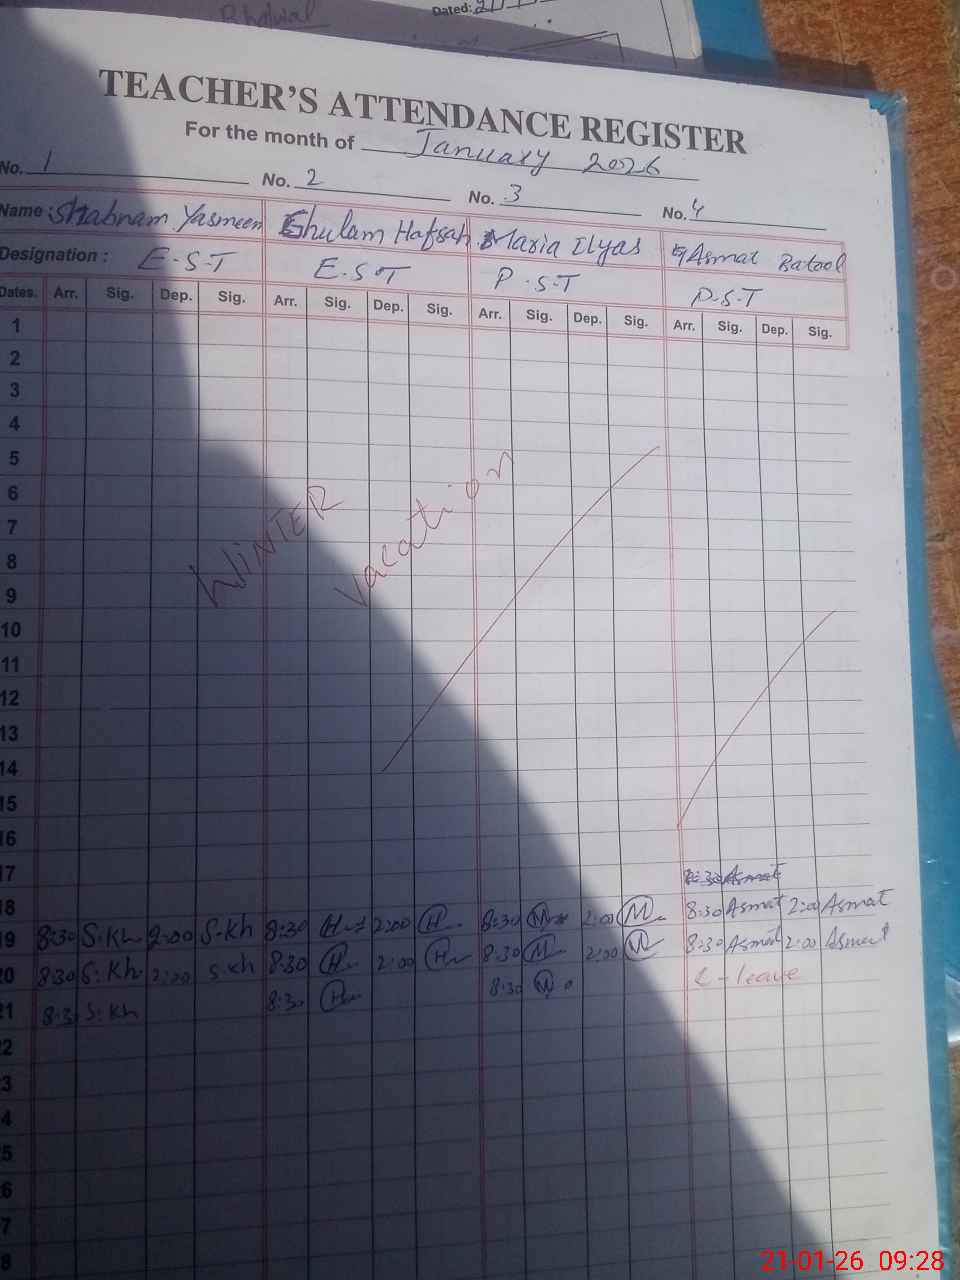 Bhalwal
Dated:
TEACHER'S ATTENDANCE REGISTER
For the month of January 2026
No. 1 No. 2 No. 3 No. 4
Name : Shabnam Yasmeen Ghulam Hafsah Maria Ilyas Asmat Batool
Designation : E.S.T E.S.T P.S.T P.S.T
Dates. Arr. Sig. Dep. Sig. Arr. Sig. Dep. Sig. Arr. Sig. Dep. Sig. Arr. Sig. Dep. Sig.
1
2
3
4
5
6
7
8
9
10
11
12
13
14
15
16
WINTER vacation
17 8:30 Asmat
18
19 8:30 S.Kh 2:00 S.Kh 8:30 H 2:00 H 8:30 M 2:00 M 8:30 Asmat 2:00 Asmat
20 8:30 S.Kh 2:00 S.Kh 8:30 H 2:00 H 8:30 M 2:00 M 8:30 Asmat 2:00 Asmat
21 8:30 S.Kh 8:30 H 8:30 M C-leave
2
3
4
5
6
7
8
21-01-26 09:28